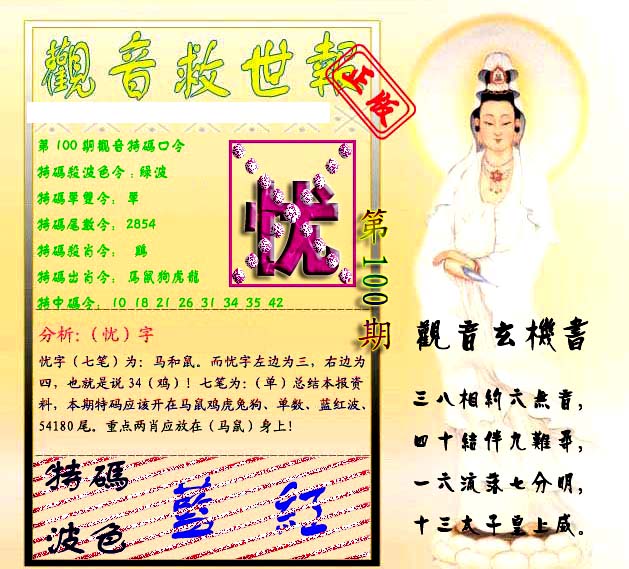 觀音救世報
正版
第100期觀音特碼口令
特碼殺波色令：綠波
特碼單雙令：單
特碼尾數令：2854
特碼殺肖令：鷄
特碼出肖令：馬鼠狗虎龍
特中碼令：10 18 21 26 31 34 35 42
忧
第100期
分析:（忧）字
忧字（七笔）为：马和鼠。而忧字左边为三，右边为
四，也就是说34（鸡）！七笔为：（单）总结本报资
料，本期特码应该开在马鼠鸡虎兔狗、单数、蓝红波、
54180尾。重点两肖应放在（马鼠）身上！
特碼
波色
藍 红
觀音玄機書
三八相約六無音，
四十結伴九難尋，
一六流落七分明，
十三太子皇上威。